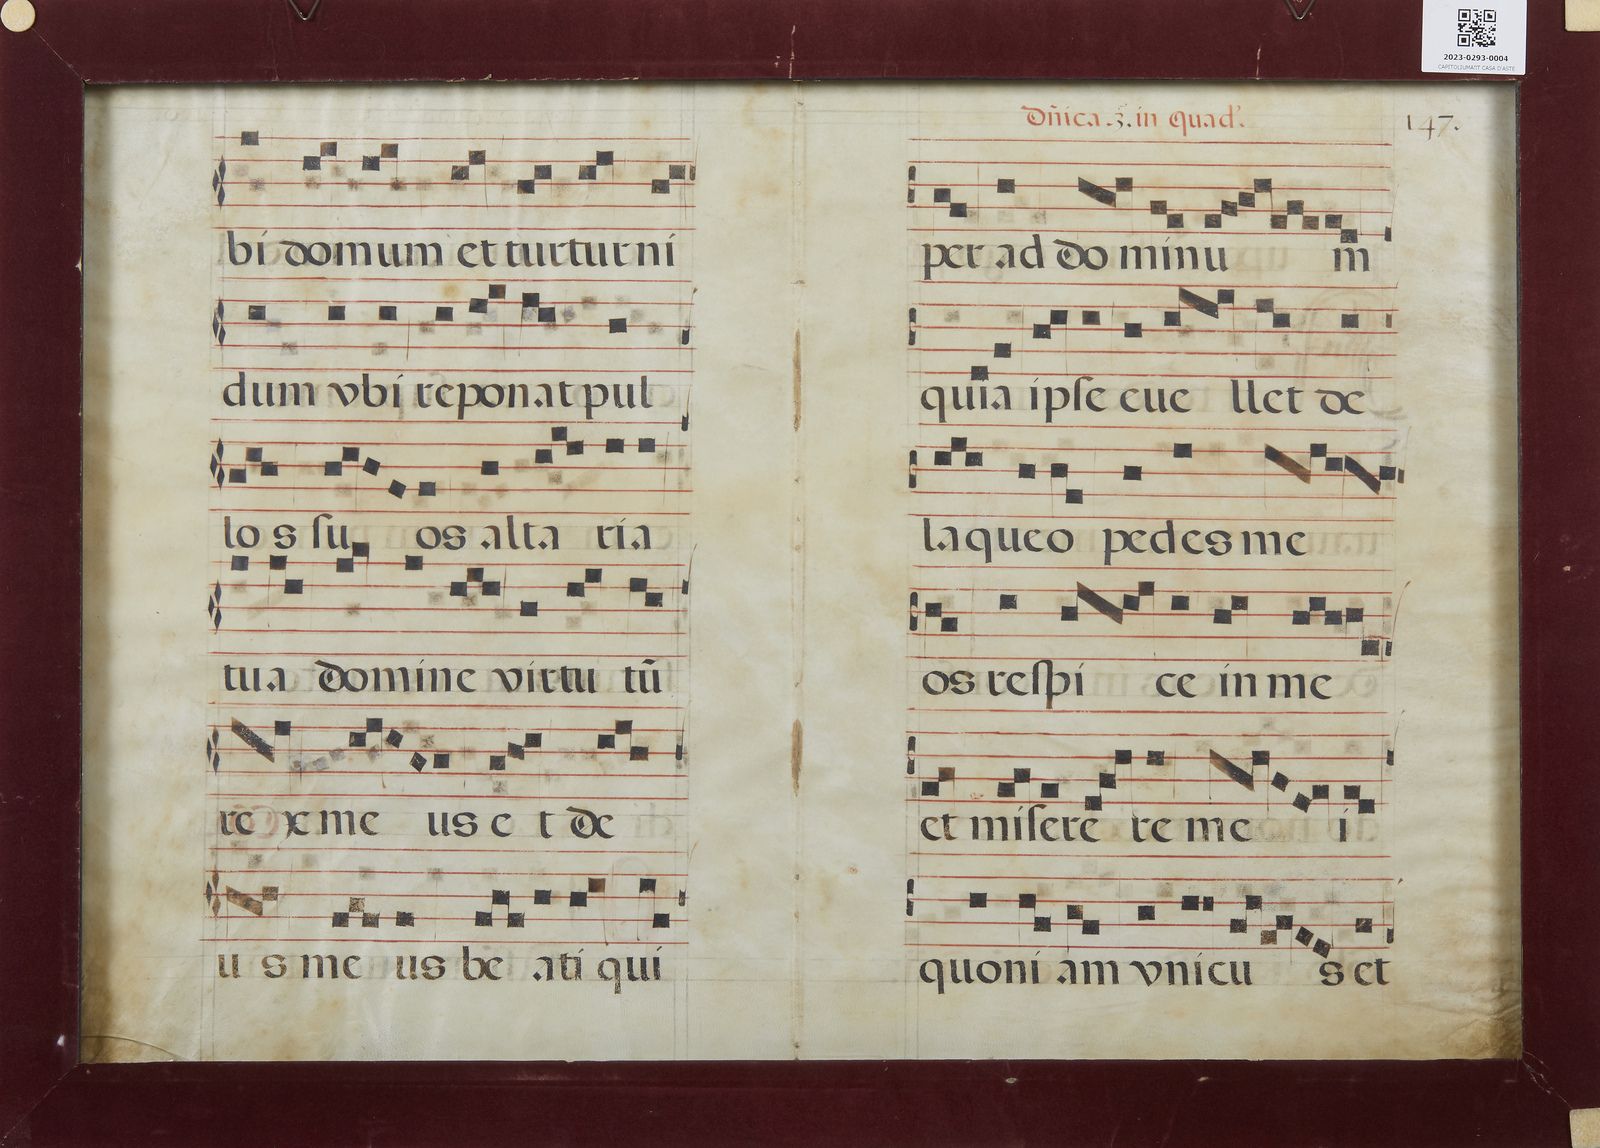 2023-0293-0004
CAPITOLIUMART CASA D'ASTE
bi domum et turtur ni
dum vbi reponat pul
lo s ſu os alta ria
tua domine virtu tū
re x me us e t de
u s me us be ati qui
Dn̄ica .3. in Quad.
147.
per ad do minu m
quia ipſe eue llet de
laqueo pedes me
os reſpi ce in me
et miſere re me i
quoni am vnicu s et